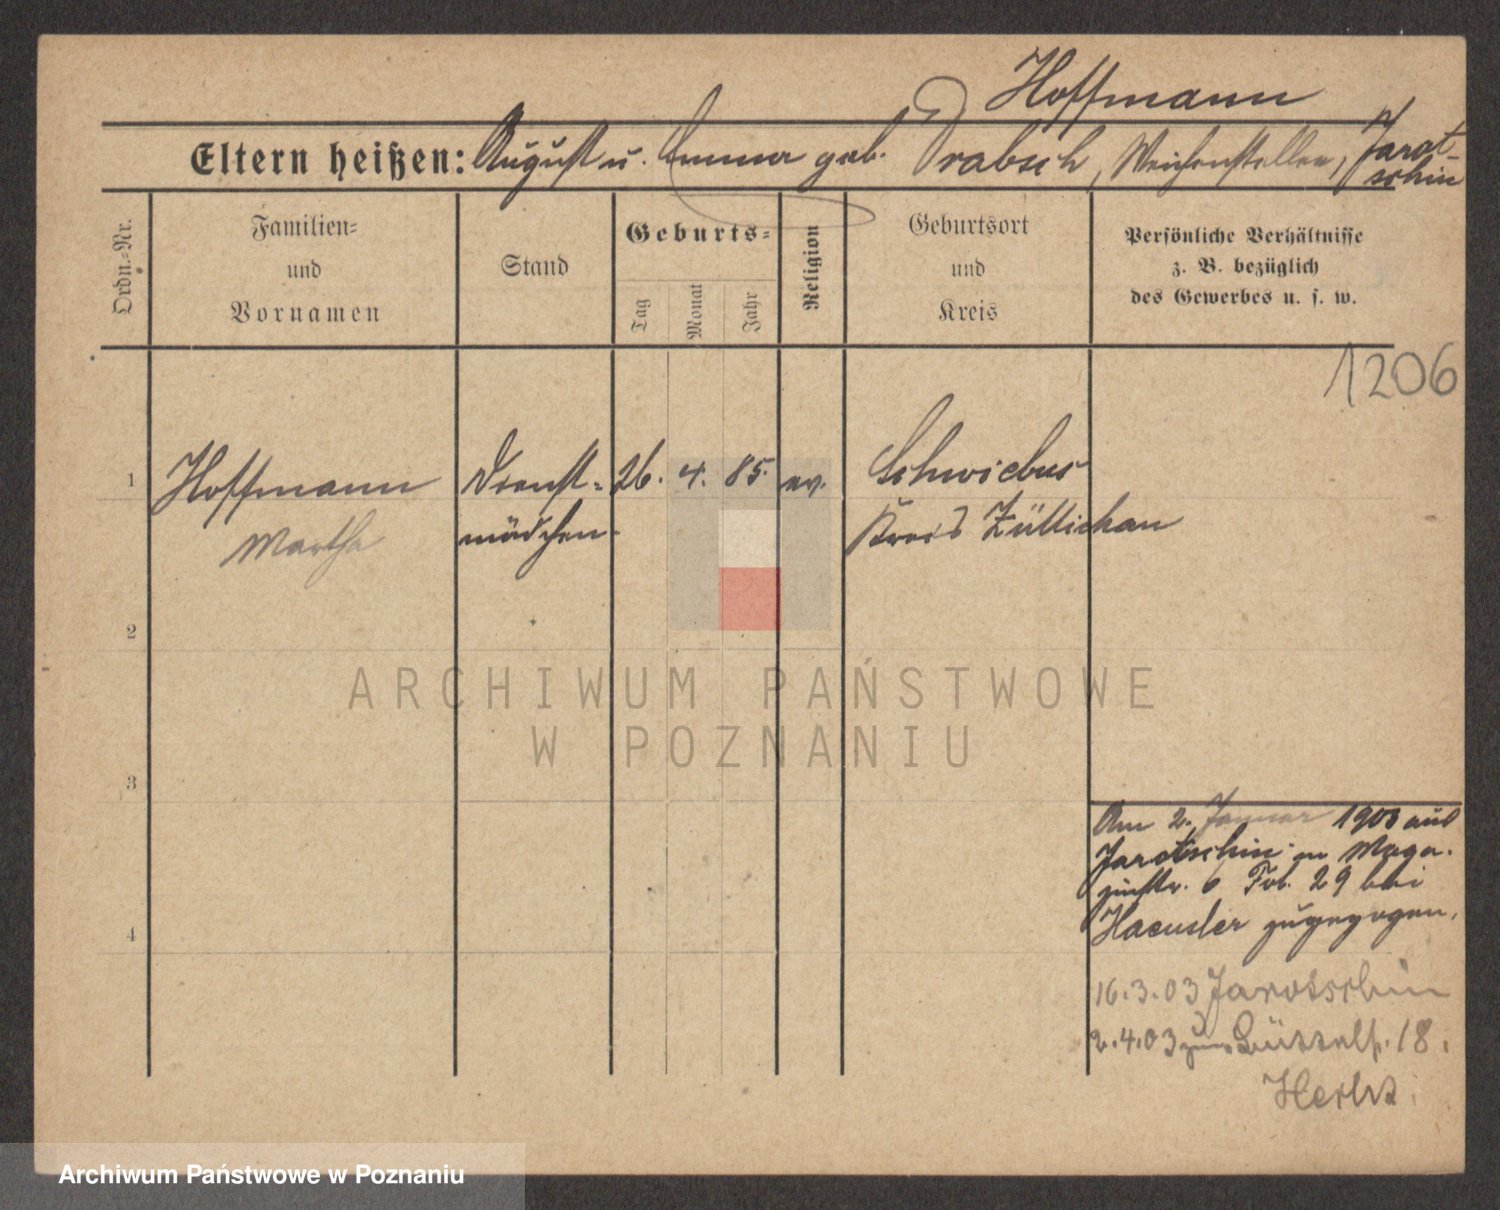 Hoffmann
Eltern heißen: August u. Emma geb. Drabsch, Weichensteller, Jarot-
schin
Ordn.-Nr.
Familien-
und
Vornamen
Stand
Geburts-
Tag
Monat
Jahr
Religion
Geburtsort
und
Kreis
Persönliche Verhältnisse
z. B. bezüglich
des Gewerbes u. s. w.
1206
1 Hoffmann Dienst- 26. 4. 85. ev. Schwiebus
Martha mädchen. Kreis Züllichau
2
3
4
Am 2. Januar 1903 aus
Jarotschin in Maga-
zinstr. 6 bei
Haeusler zugezogen.
16.3.03 Jarotschin
2.4.03 18.
Herbst
ARCHIWUM PAŃSTWOWE
W POZNANIU
Archiwum Państwowe w Poznaniu